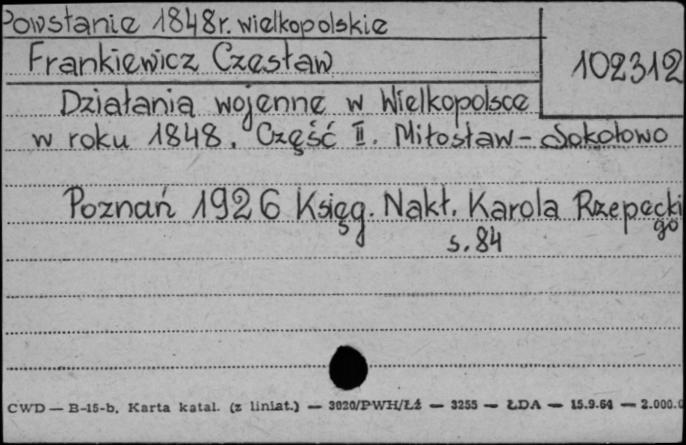 Powstanie 1848r. wielkopolskie
Frankiewicz Czesław
102312
Działania wojenne w Wielkopolsce
w roku 1848. Część II. Miłosław - Sokołowo
Poznań 1926 Księg. Nakł. Karola Rzepecki
go
s. 84
CWD — B-15-b. Karta katal. (z liniat.) — 3020/PWH/Łź — 3255 — ŁDA — 15.9.64 — 2.000.0